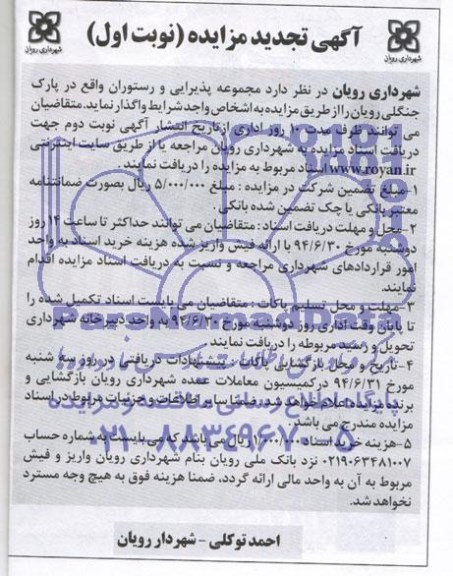 آگهی تجدید مزایده (نوبت اول)
شهرداری رویان
شهرداری رویان
شهرداری رویان در نظر دارد مجموعه پذیرایی و رستوران واقع در پارک
جنگلی رویان را از طریق مزایده به اشخاص واجد شرایط واگذار نماید. متقاضیان
می توانند ظرف مدت ۱۰ روز اداری از تاریخ انتشار آگهی نوبت دوم جهت
دریافت اسناد مزایده به شهرداری رویان مراجعه یا از طریق سایت اینترنتی
www.royan.ir اسناد مربوط به مزایده را دریافت نمایند.
۱-مبلغ تضمین شرکت در مزایده : مبلغ ۵/۰۰۰/۰۰۰ ریال بصورت ضمانتنامه
معتبر بانکی یا چک تضمین شده بانکی.
۲-محل و مهلت دریافت اسناد : متقاضیان می توانند حداکثر تا ساعت ۱۴ روز
دوشنبه مورخ ۹۴/۶/۳۰ با ارائه فیش واریز شده هزینه خرید اسناد به واحد
امور قراردادهای شهرداری مراجعه و نسبت به دریافت اسناد مزایده اقدام
نمایند.
۳-مهلت و محل تسلیم پاکات : متقاضیان می بایست اسناد تکمیل شده را
تا پایان وقت اداری روز دوشنبه مورخ ۹۴/۶/۳۰ به واحد دبیرخانه شهرداری
تحویل و رسید مربوطه را دریافت نمایند
۴-تاریخ و محل بازگشایی پاکات : پیشنهادات دریافتی در روز سه شنبه
مورخ ۹۴/۶/۳۱ در کمیسیون معاملات عمده شهرداری رویان بازگشایی و
برنده مزایده اعلام خواهد شد. ضمنا سایر اطلاعات و جزئیات مربوط در اسناد
مزایده مندرج می باشد.
۵-هزینه خرید اسناد ۱/۰۰۰/۰۰۰ ریال می باشد که می بایست به شماره حساب
۰۲۱۹۰۶۳۴۸۱۰۰۷ نزد بانک ملی رویان بنام شهرداری رویان واریز و فیش
مربوط به آن به واحد مالی ارائه گردد، ضمنا هزینه فوق به هیچ وجه مسترد
نخواهد شد.
احمد توکلی - شهردار رویان
پایگاه اطلاع رسانی مناقصه و مزایده
۰۲۱-۸۸۳۴۹۶۷۰-۵